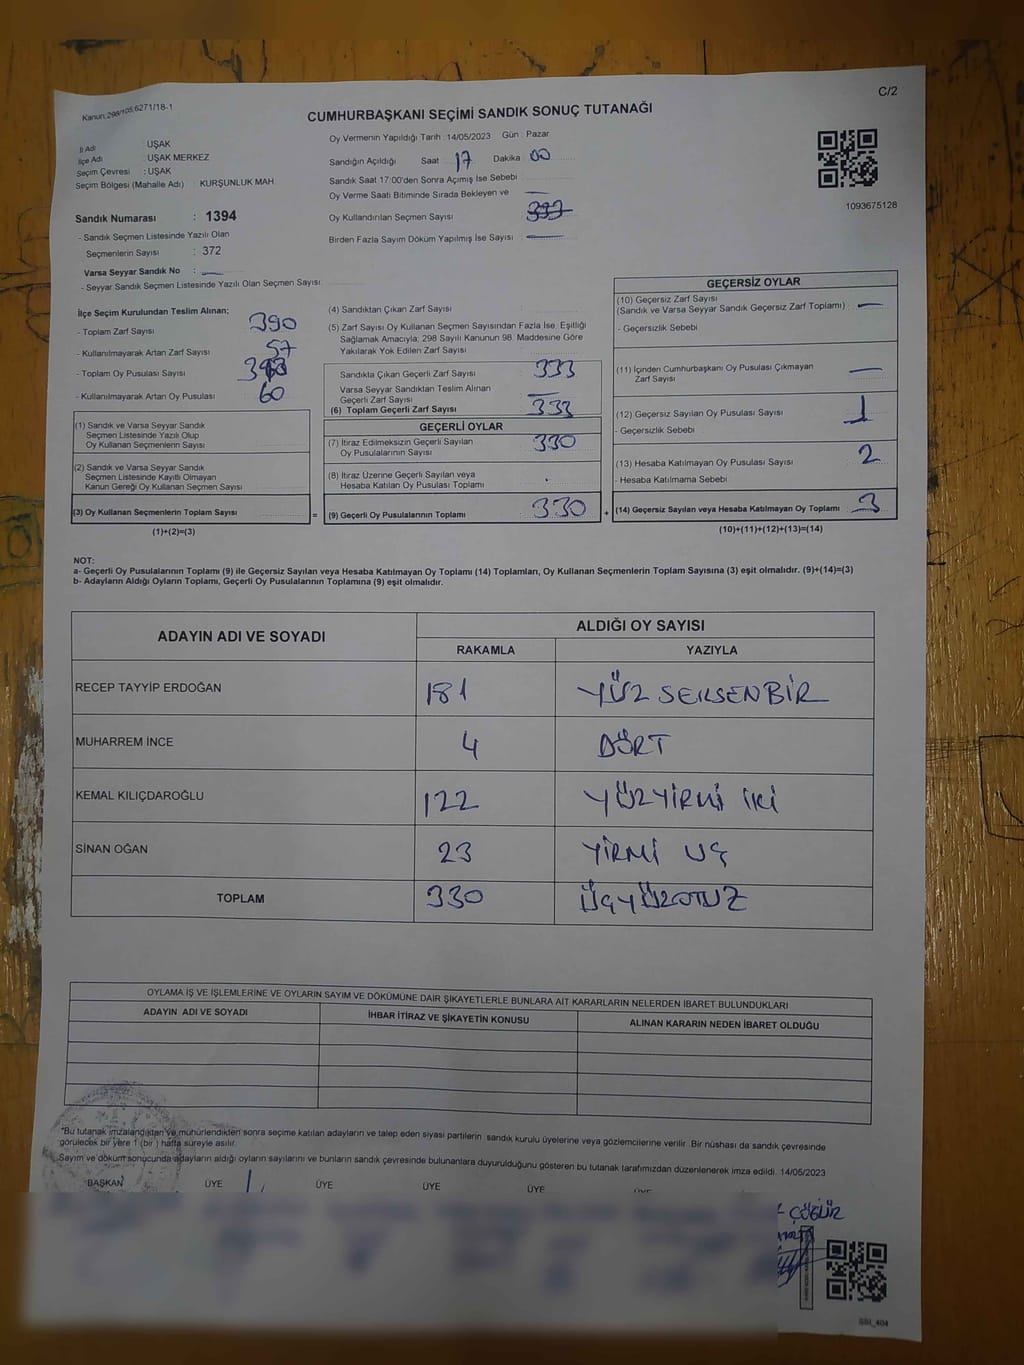 Kanun:298/105;6271/18-1
C/2
CUMHURBAŞKANI SEÇİMİ SANDIK SONUÇ TUTANAĞI
İl Adı : UŞAK
İlçe Adı UŞAK MERKEZ
Seçim Çevresi : UŞAK
Seçim Bölgesi (Mahalle Adı) : KURŞUNLUK MAH.
Oy Vermenin Yapıldığı Tarih : 14/05/2023 Gün : Pazar
Sandığın Açıldığı Saat 17 Dakika 00
Sandık Saat 17:00'den Sonra Açımış İse Sebebi
Oy Verme Saati Bitiminde Sırada Bekleyen ve
Oy Kullandırılan Seçmen Sayısı
Birden Fazla Sayım Döküm Yapılmış İse Sayısı
1093675128
Sandık Numarası : 1394
- Sandık Seçmen Listesinde Yazılı Olan
Seçmenlerin Sayısı : 372
Varsa Seyyar Sandık No : —
- Seyyar Sandık Seçmen Listesinde Yazılı Olan Seçmen Sayısı
İlçe Seçim Kurulundan Teslim Alınan;
- Toplam Zarf Sayısı 390
- Kullanılmayarak Artan Zarf Sayısı 57
- Toplam Oy Pusulası Sayısı
- Kullanılmayarak Artan Oy Pusulası 60
(1) Sandık ve Varsa Seyyar Sandık
Seçmen Listesinde Yazılı Olup
Oy Kullanan Seçmenlerin Sayısı
(2) Sandık ve Varsa Seyyar Sandık
Seçmen Listesinde Kayıtlı Olmayan
Kanun Gereği Oy Kullanan Seçmen Sayısı
(3) Oy Kullanan Seçmenlerin Toplam Sayısı
=
(1)+(2)=(3)
(4) Sandıktan Çıkan Zarf Sayısı
(5) Zarf Sayısı Oy Kullanan Seçmen Sayısından Fazla İse, Eşitliği
Sağlamak Amacıyla; 298 Sayılı Kanunun 98. Maddesine Göre
Yakılarak Yok Edilen Zarf Sayısı
Sandıkta Çıkan Geçerli Zarf Sayısı 333
Varsa Seyyar Sandıktan Teslim Alınan
Geçerli Zarf Sayısı —
(6) Toplam Geçerli Zarf Sayısı 333
GEÇERLİ OYLAR
(7) İtiraz Edilmeksizin Geçerli Sayılan
Oy Pusulalarının Sayısı 330
(8) İtiraz Üzerine Geçerli Sayılan veya
Hesaba Katılan Oy Pusulası Toplamı
(9) Geçerli Oy Pusulalarının Toplamı 330
+
GEÇERSİZ OYLAR
(10) Geçersiz Zarf Sayısı
(Sandık ve Varsa Seyyar Sandık Geçersiz Zarf Toplamı) —
- Geçersizlik Sebebi
(11) İçinden Cumhurbaşkanı Oy Pusulası Çıkmayan
Zarf Sayısı —
(12) Geçersiz Sayılan Oy Pusulası Sayısı 1
- Geçersizlik Sebebi
(13) Hesaba Katılmayan Oy Pusulası Sayısı 2
- Hesaba Katılmama Sebebi
(14) Geçersiz Sayılan veya Hesaba Katılmayan Oy Toplamı 3
(10)+(11)+(12)+(13)=(14)
NOT:
a- Geçerli Oy Pusulalarının Toplamı (9) ile Geçersiz Sayılan veya Hesaba Katılmayan Oy Toplamı (14) Toplamları, Oy Kullanan Seçmenlerin Toplam Sayısına (3) eşit olmalıdır. (9)+(14)=(3)
b- Adayların Aldığı Oyların Toplamı, Geçerli Oy Pusulalarının Toplamına (9) eşit olmalıdır.
ADAYIN ADI VE SOYADI ALDIĞI OY SAYISI
RAKAMLA YAZIYLA
RECEP TAYYİP ERDOĞAN 181 YÜZ SEKSENBİR
MUHARREM İNCE 4 DÖRT
KEMAL KILIÇDAROĞLU 122 YÜZYİRMİ İKİ
SİNAN OĞAN 23 YİRMİ ÜÇ
TOPLAM 330 ÜÇYÜZOTUZ
OYLAMA İŞ VE İŞLEMLERİNE VE OYLARIN SAYIM VE DÖKÜMÜNE DAİR ŞİKAYETLERLE BUNLARA AİT KARARLARIN NELERDEN İBARET BULUNDUKLARI
ADAYIN ADI VE SOYADI İHBAR İTİRAZ VE ŞİKAYETİN KONUSU ALINAN KARARIN NEDEN İBARET OLDUĞU
"Bu tutanak imzalandıktan ve mühürlendikten sonra seçime katılan adayların ve talep eden siyasi partilerin sandık kurulu üyelerine veya gözlemcilerine verilir. Bir nüshası da sandık çevresinde
görülecek bir yere 1 (bir) hafta süreyle asılır.
Sayım ve döküm sonucunda adayların aldığı oyların sayılarını ve bunların sandık çevresinde bulunanlara duyurulduğunu gösteren bu tutanak tarafımızdan düzenlenerek imza edildi. 14/05/2023
BAŞKAN ÜYE ÜYE ÜYE ÜYE ÜYE
SSI_404